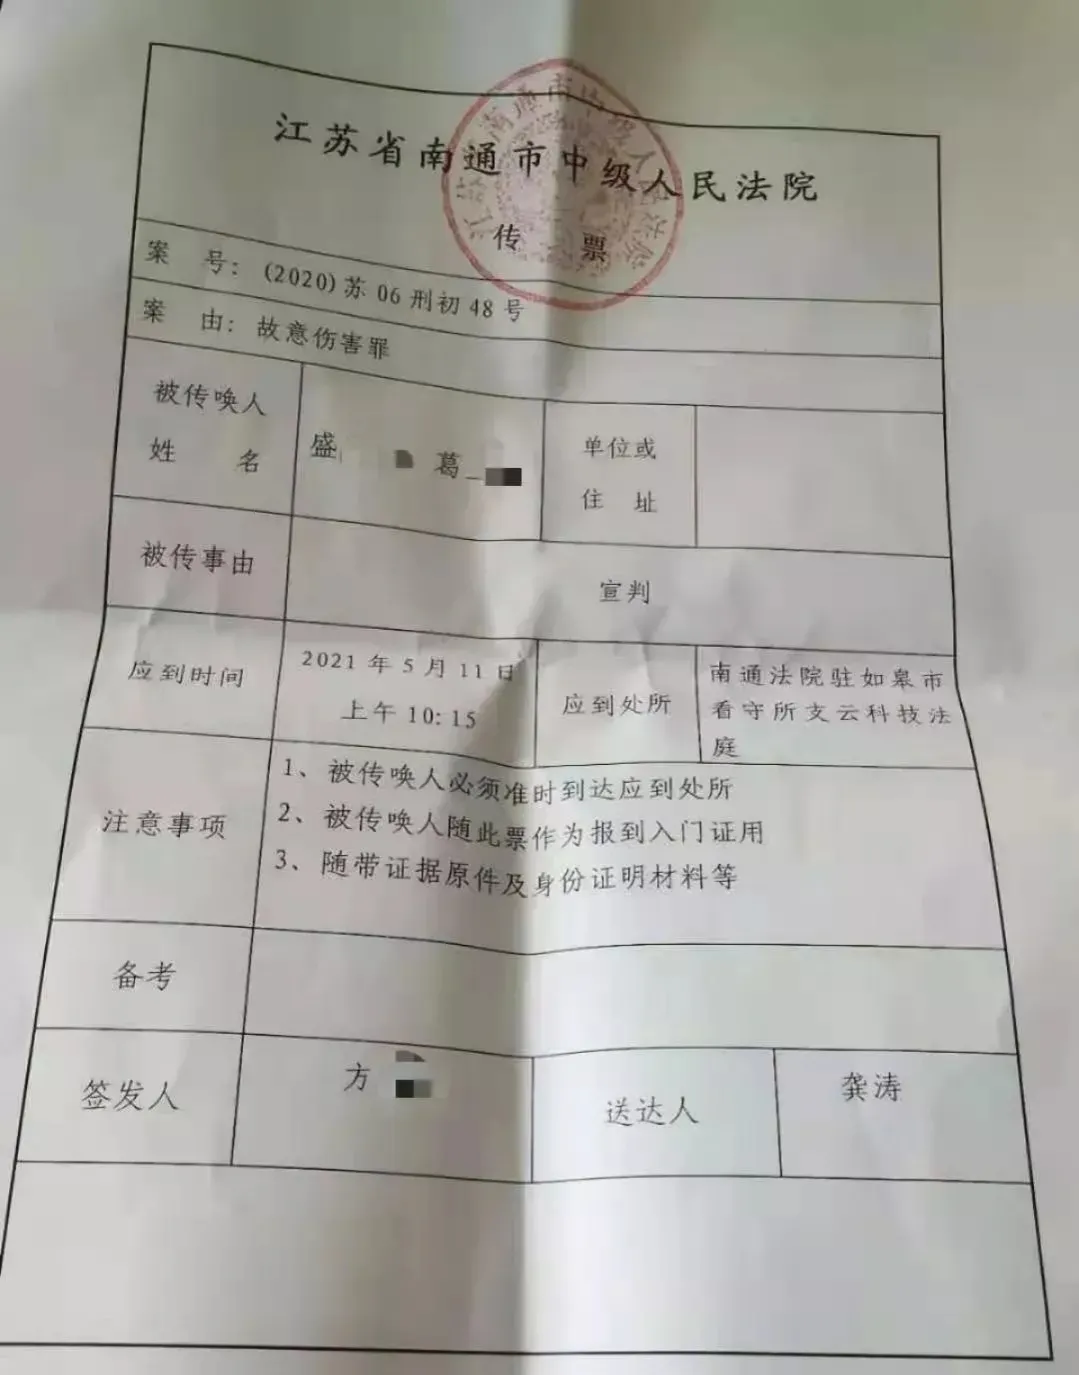 江苏省南通市中级人民法院
传 票
案 号：(2020)苏 06 刑初 48 号
案 由：故意伤害罪
被传唤人
姓 名
盛 葛
单位或
住 址
被传事由
宣判
应到时间
2021 年 5 月 11 日
上午 10:15
应到处所
南通法院驻如皋市
看守所支云科技法
庭
注意事项
1、被传唤人必须准时到达应到处所
2、被传唤人随此票作为报到入门证用
3、随带证据原件及身份证明材料等
备考
签发人
方
送达人
龚涛